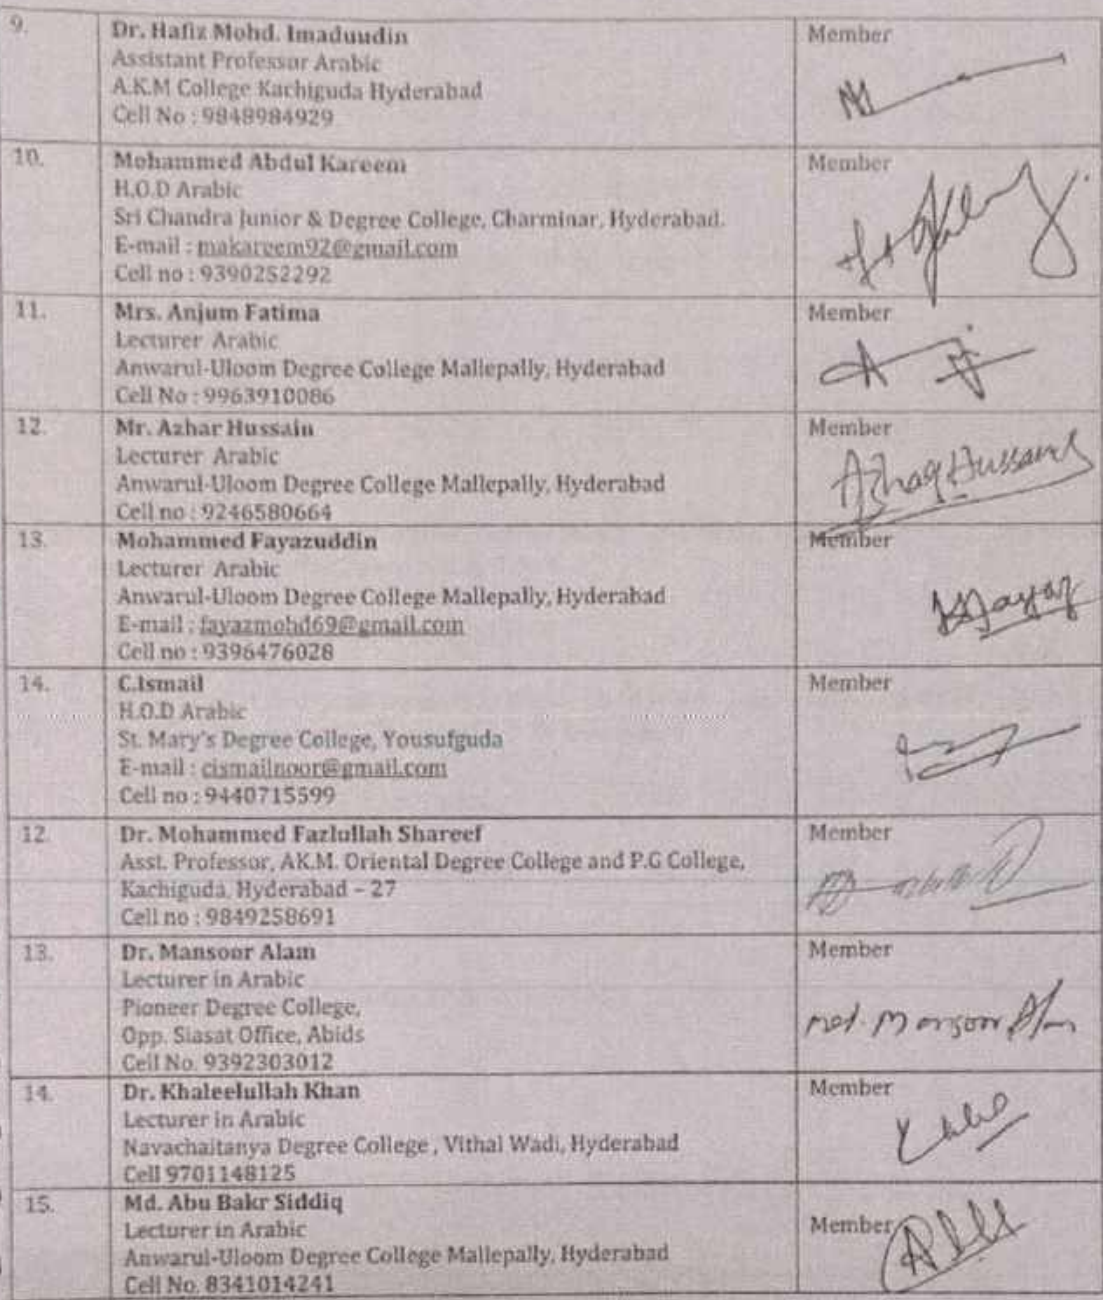 9.
Dr. Hafiz Mohd. Imaduudin
Assistant Professor Arabic
A.K.M College Kachiguda Hyderabad
Cell No : 9848984929
Member
10.
Mohammed Abdul Kareem
H.O.D Arabic
Sri Chandra Junior & Degree College, Charminar, Hyderabad.
E-mail : makareem92@gmail.com
Cell no : 9390252292
Member
11.
Mrs. Anjum Fatima
Lecturer Arabic
Anwarul-Uloom Degree College Mallepally, Hyderabad
Cell No : 9963910086
Member
12.
Mr. Azhar Hussain
Lecturer Arabic
Anwarul-Uloom Degree College Mallepally, Hyderabad
Cell no : 9246580664
Member
13.
Mohammed Fayazuddin
Lecturer Arabic
Anwarul-Uloom Degree College Mallepally, Hyderabad
E-mail : fayazmohd69@gmail.com
Cell no : 9396476028
Member
14.
C.Ismail
H.O.D Arabic
St. Mary's Degree College, Yousufguda
E-mail : cismailnoor@gmail.com
Cell no : 9440715599
Member
12.
Dr. Mohammed Fazlullah Shareef
Asst. Professor, AK.M. Oriental Degree College and P.G College,
Kachiguda, Hyderabad – 27
Cell no : 9849258691
Member
13.
Dr. Mansoor Alam
Lecturer in Arabic
Pioneer Degree College,
Opp. Siasat Office, Abids
Cell No. 9392303012
Member
Mansoor
14.
Dr. Khaleelullah Khan
Lecturer in Arabic
Navachaitanya Degree College , Vithal Wadi, Hyderabad
Cell 9701148125
Member
15.
Md. Abu Bakr Siddiq
Lecturer in Arabic
Anwarul-Uloom Degree College Mallepally, Hyderabad
Cell No. 8341014241
Member